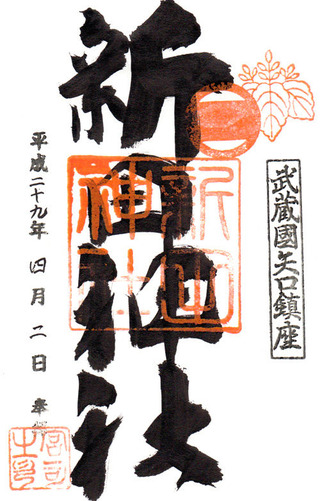 武蔵國矢口鎮座
新田神社
新田神社
平成二十九年 四月 二日 奉
宮司之印